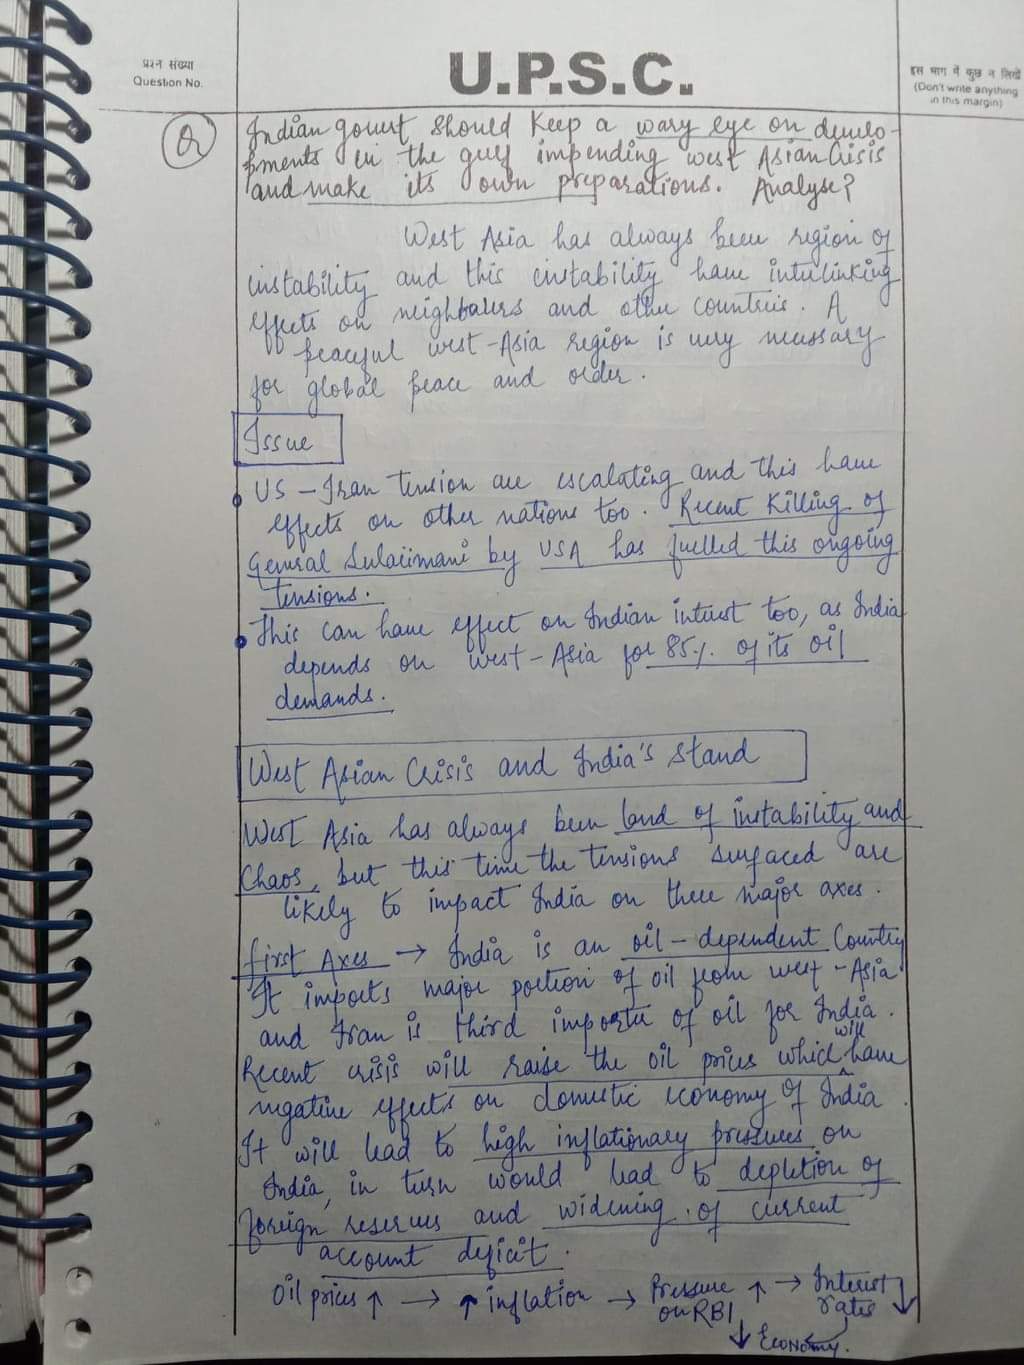 प्रश्न संख्या
Question No.
U.P.S.C.
इस भाग में कुछ न लिखें
(Don't write anything
in this margin)
Q
Indian govert should keep a wary eye on develo-
pments in the gulf impending west Asian Crisis
and make its own preparations. Analyse?
West Asia has always been region of
instability and this instability have interlinking
effects on neighbours and other countries. A
peaceful west-Asia region is very necessary
for global peace and order.
Issue
US - Iran tension are escalating and this have
effects on other nations too. Recent Killing of
General Sulaiimani by USA has fuelled this ongoing
tensions.
This can have effect on Indian interest too, as India
depends on west-Asia for 85% of its oil
demands.
West Asian Crisis and India's stand
West Asia has always been land of instability and
Chaos, but this time the tensions surfaced are
likely to impact India on three major axes.
first Axes → India is an oil-dependent Country
It imports major portion of oil from west-Asia
and Iran is third importer of oil for India.
Recent crisis will raise the oil prices which will have
negative effects on domestic economy of India.
It will lead to high inflationary pressures on
India, in turn would lead to depletion of
foreign reserves and widening of current
account deficit.
Oil prices ↑ → ↑ inflation → Pressure on RBI ↑ → Interest rates ↓
↓ Economy.